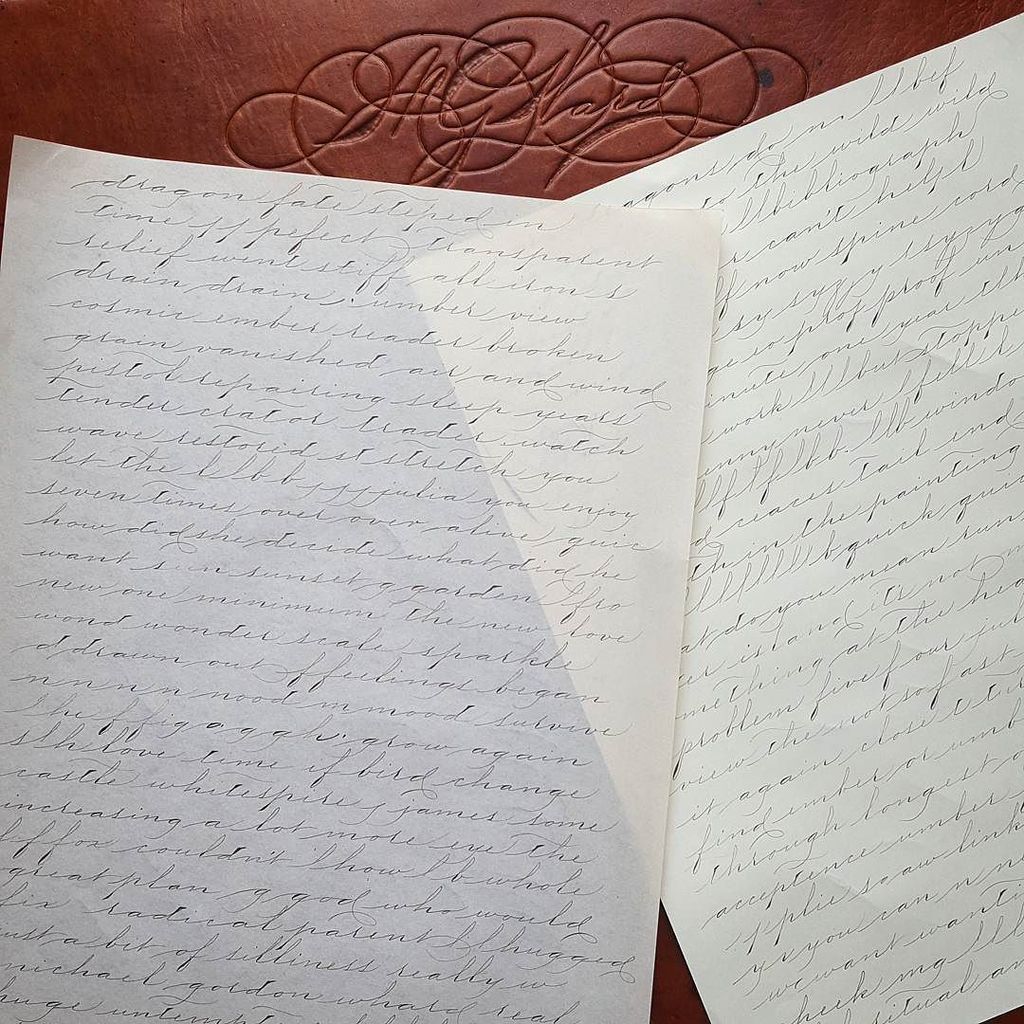 MGWard
dragon fate steped in
time ff prefect transparent
relief went stiff all iron s
drain drain umber view
cosmic ember reader broken
grain vanished air and wind
pistol repairing sleep years
tender crator trader watch
wave restored st stretch you
let the l l b b y j j j julia you enjoy
seven times over over alive quic
how did she decide what did he
want sun sunset g garden f fro
new one minimum the new love
wond wonder scale sparkle
d drawn out f feelings began
n n n n nood m mood survive
grow again
love time if bird change
castle whitespire j james some
increasing a lot more eye the
couldn't how l b whole
great plan g god who would
fix radical parent hugged
just a bit of silliness really w
michael gordon whard real
huge
dragons do
to the wild wild
bibliograph
r can't help l
f now spine cord
syzy syzyg
proof proof un
minute one year th
work l l l but stoppe
enny never l fell
windo
reaces tail end
th in the painting
quick quic
at do you mean suns
er island it's not
mething at the hea
problem five four jul
view the not so fast
it again close t
find ember or umb
through longest
acceptence umber
pplie s saw link
y y you can n n n
we want wanti